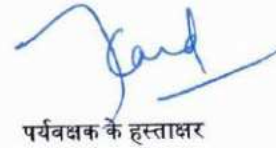 पर्यवक्षक के हस्ताक्षर